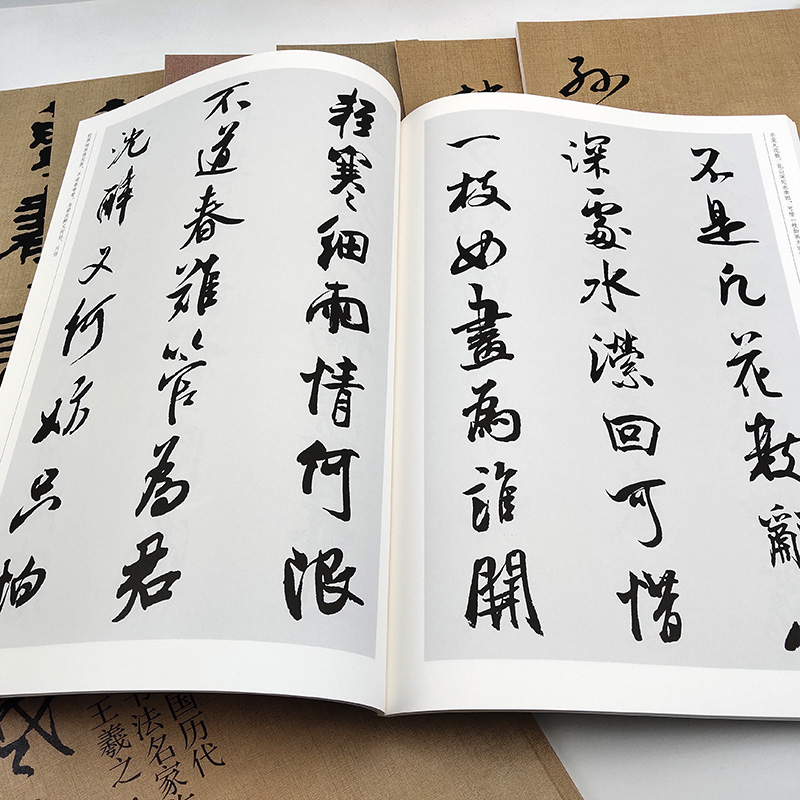 不是凡花数亂
深處水瀠回可惜
一枝如畫為誰開
輕寒細雨情何限
不道春難管為君
沈醉又何妨只怕
孙
国历代
书法名家
王羲之